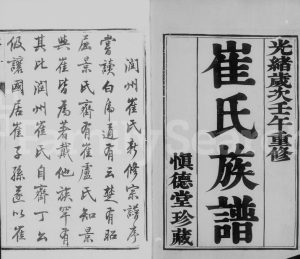 光緒歲次壬午重修
崔氏族譜
慎德堂珍藏
潤州崔氏新修宗譜序
嘗讀白傅道有云楚有昭
屈景氏齊有崔盧氏知景
與崔皆為著戴他族罕有
其比潤州崔氏自齊丁公
伋讓國居崔子孫遂以崔